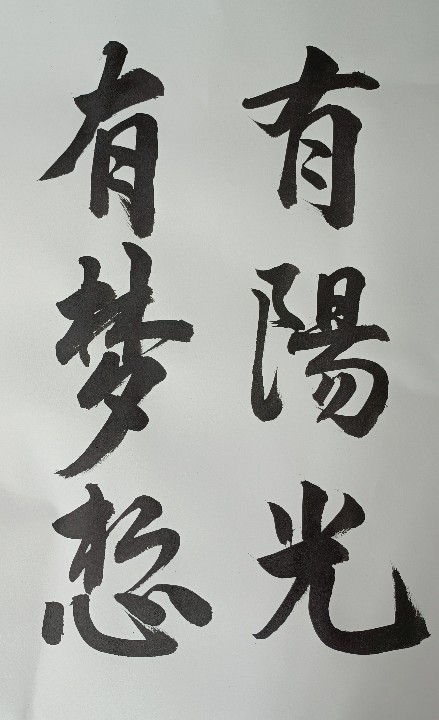 有陽光
有梦想